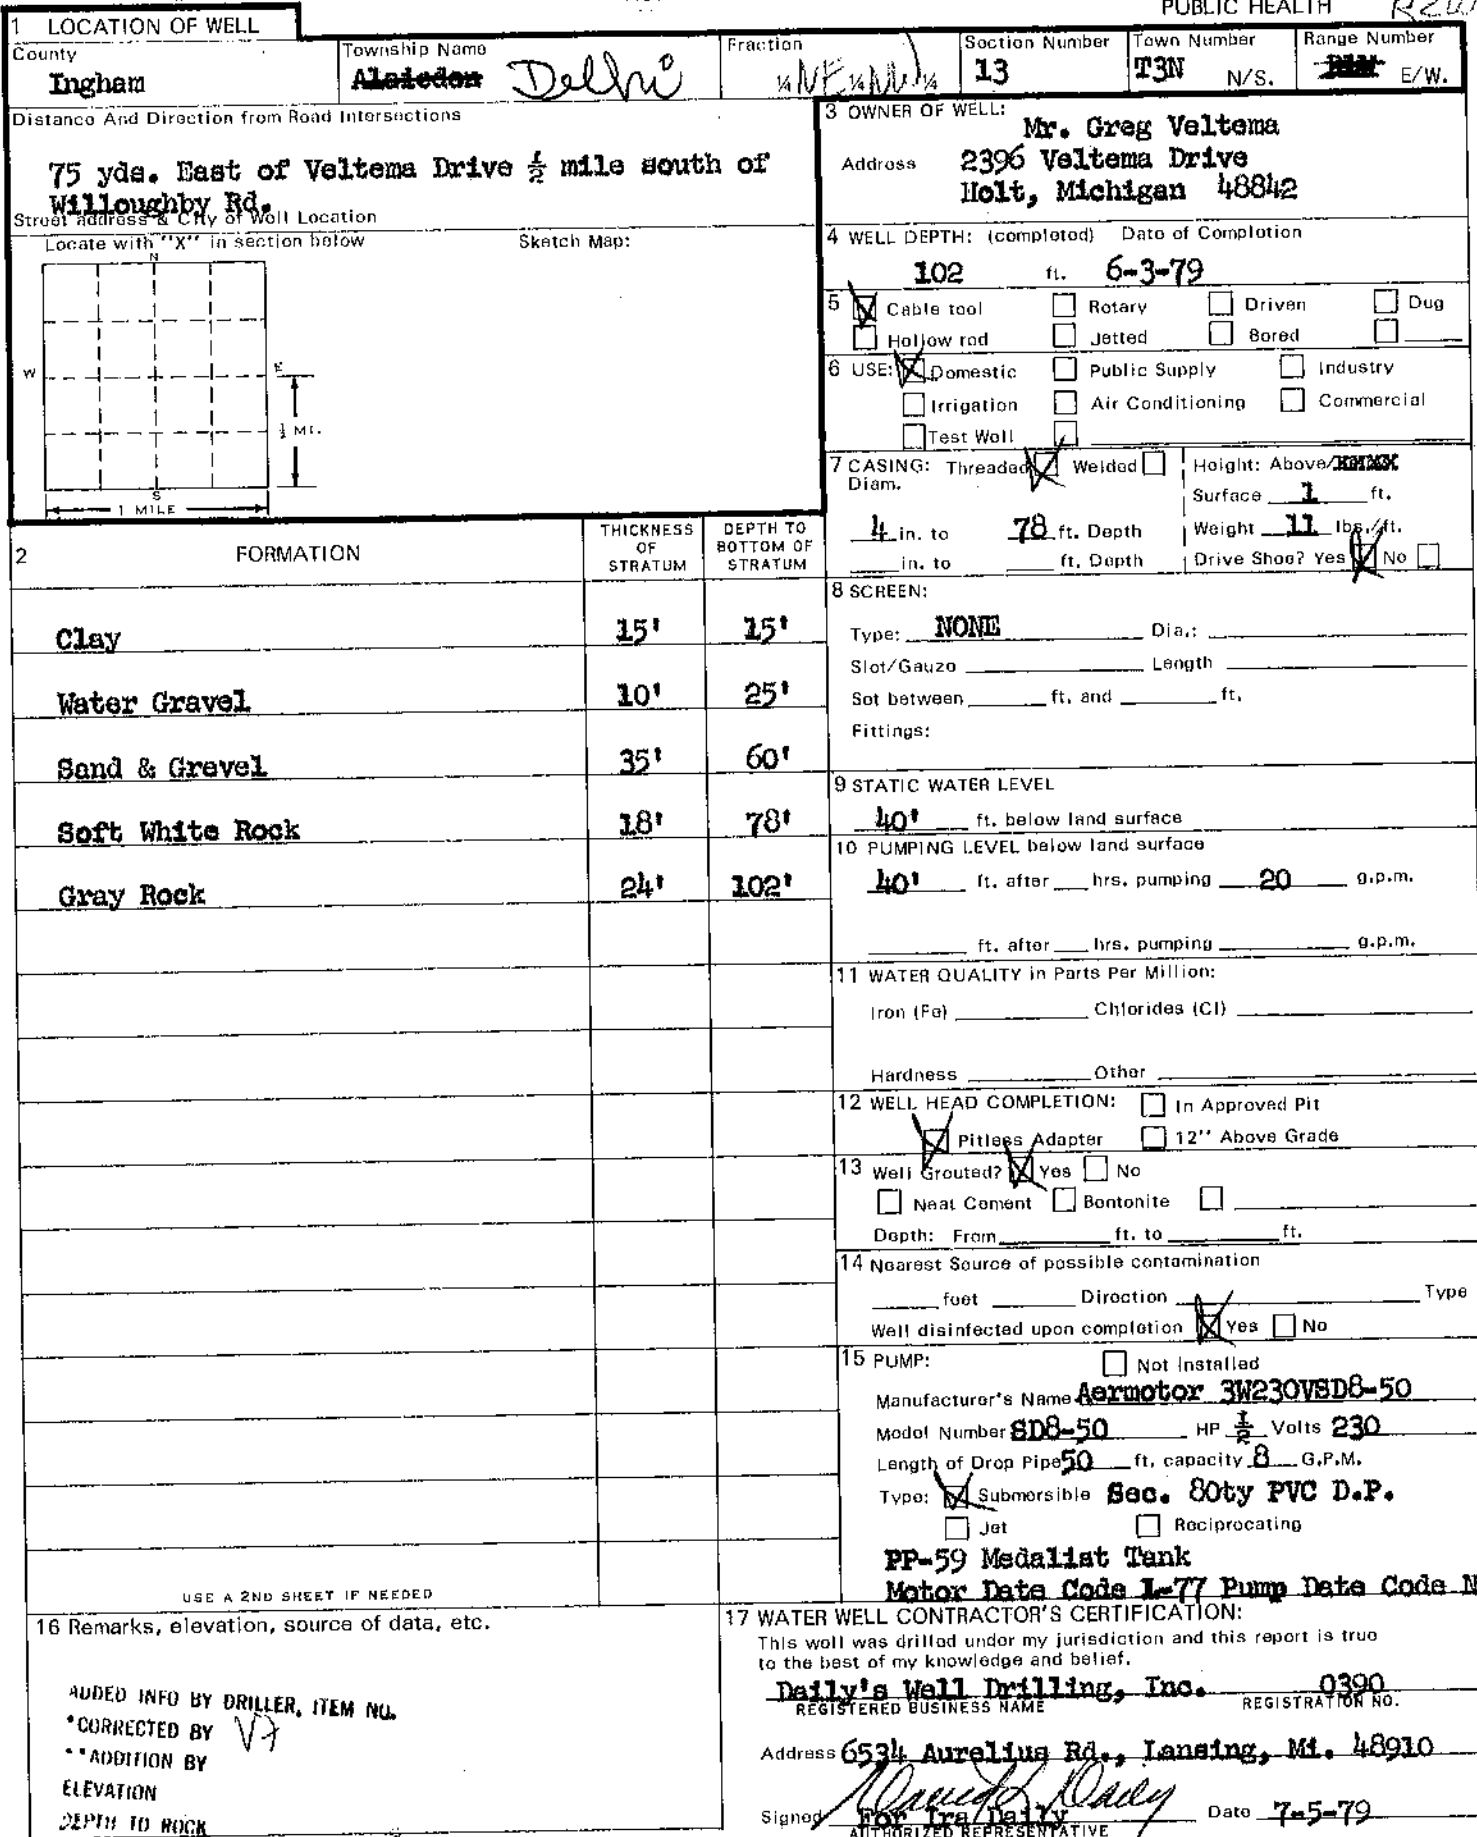 PUBLIC HEALTH
1 LOCATION OF WELL
County
Ingham
Township Name
Alaiedon Delhi
Fraction
¼ NE ¼ NW ¼
Section Number
13
Town Number
T3N N/S.
Range Number
E/W.
Distance And Direction from Road Intersections
75 yds. East of Veltema Drive ½ mile south of
Willoughby Rd.
Street address & City of Well Location
Locate with "X" in section below
Sketch Map:
N
W
E
½ MI.
S
1 MILE
3 OWNER OF WELL:
Mr. Greg Veltema
Address 2396 Veltema Drive
Holt, Michigan 48842
4 WELL DEPTH: (completed) Date of Completion
102 ft. 6-3-79
5 Cable tool Rotary Driven Dug
Hollow rod Jetted Bored
6 USE: Domestic Public Supply Industry
Irrigation Air Conditioning Commercial
Test Well
7 CASING: Threaded Welded Height: Above/
Diam.
Surface 1 ft.
4 in. to 78 ft. Depth Weight 11 lbs./ft.
in. to ft. Depth Drive Shoe? Yes No
2 FORMATION
THICKNESS OF STRATUM
DEPTH TO BOTTOM OF STRATUM
Clay 15' 15'
Water Gravel 10' 25'
Sand & Grevel 35' 60'
Soft White Rock 18' 78'
Gray Rock 24' 102'
USE A 2ND SHEET IF NEEDED
8 SCREEN:
Type: NONE Dia.:
Slot/Gauze Length
Set between ft. and ft.
Fittings:
9 STATIC WATER LEVEL
40' ft. below land surface
10 PUMPING LEVEL below land surface
40' ft. after hrs. pumping 20 g.p.m.
ft. after hrs. pumping g.p.m.
11 WATER QUALITY in Parts Per Million:
Iron (Fe) Chlorides (Cl)
Hardness Other
12 WELL HEAD COMPLETION: In Approved Pit
Pitless Adapter 12" Above Grade
13 Well Grouted? Yes No
Neat Cement Bentonite
Depth: From ft. to ft.
14 Nearest Source of possible contamination
feet Direction Type
Well disinfected upon completion Yes No
15 PUMP: Not Installed
Manufacturer's Name Aermotor 3W230VSD8-50
Model Number SD8-50 HP ½ Volts 230
Length of Drop Pipe 50 ft. capacity 8 G.P.M.
Type: Submersible Sec. 80ty PVC D.P.
Jet Reciprocating
PP-59 Medalist Tank
Motor Date Code L-77 Pump Date Code N
16 Remarks, elevation, source of data, etc.
ADDED INFO BY DRILLER, ITEM NO.
*CORRECTED BY
**ADDITION BY
ELEVATION
DEPTH TO ROCK
17 WATER WELL CONTRACTOR'S CERTIFICATION:
This well was drilled under my jurisdiction and this report is true
to the best of my knowledge and belief.
Daily's Well Drilling, Inc. 0390
REGISTERED BUSINESS NAME REGISTRATION NO.
Address 6534 Aurelius Rd., Lansing, Mi. 48910
Signed For Ira Daily Date 7-5-79
AUTHORIZED REPRESENTATIVE